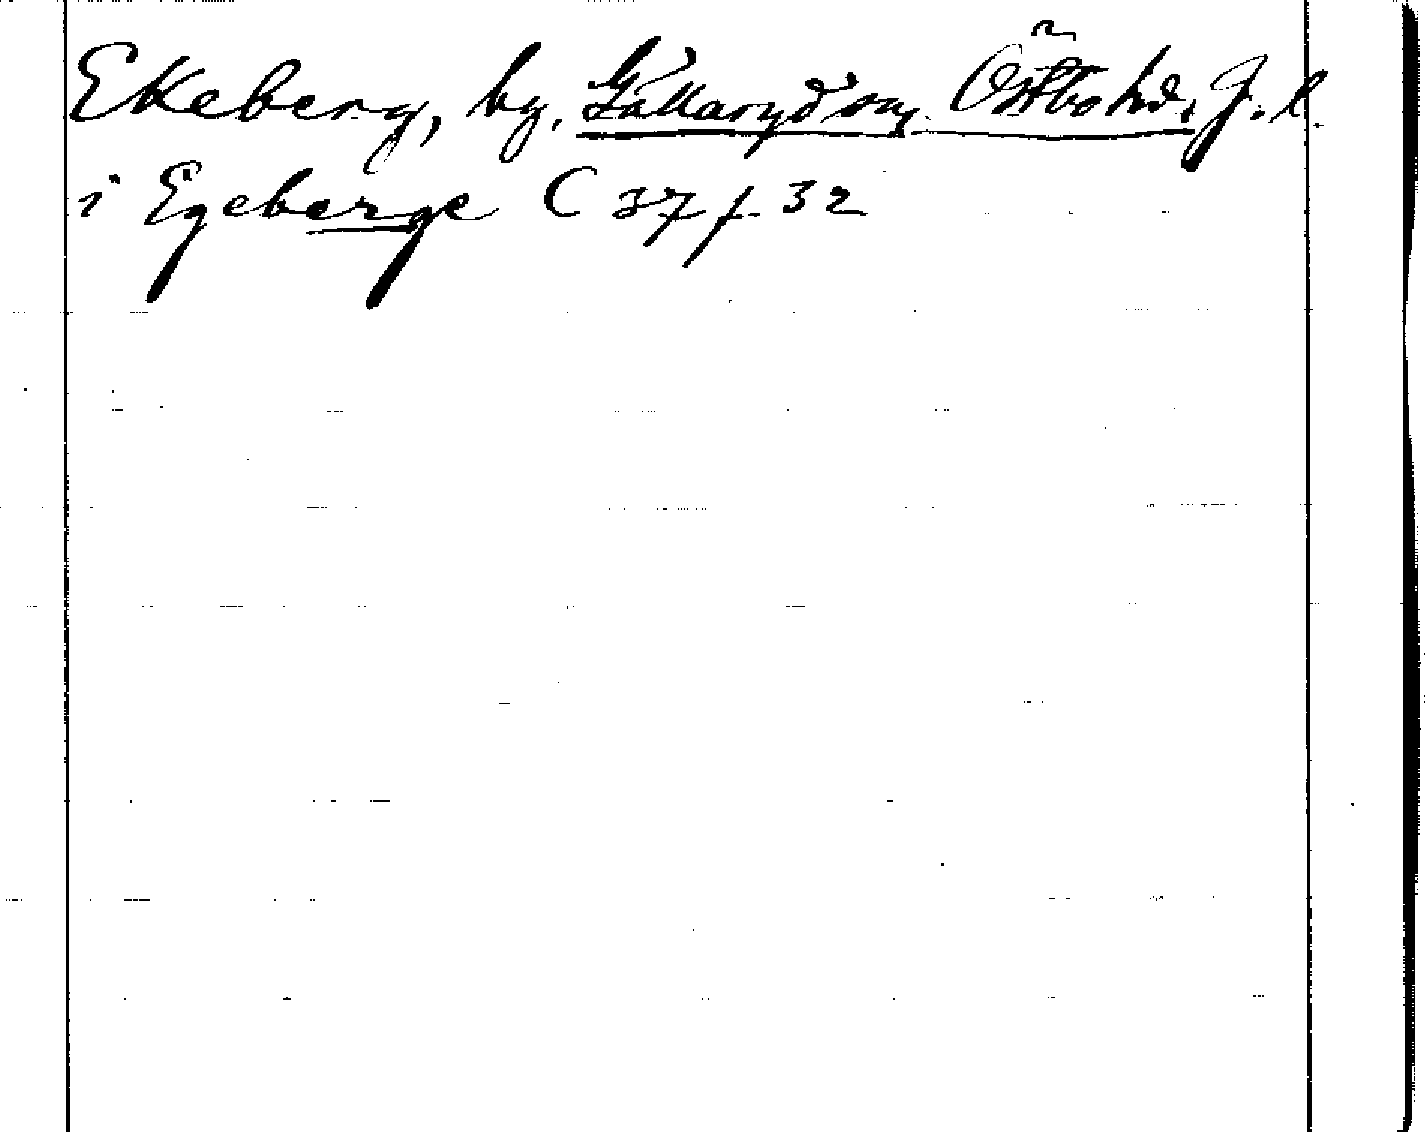 Ekeberg, by, Gällaryd sn, Östbo hd, J. l.
i Egeberge C 37 f. 32